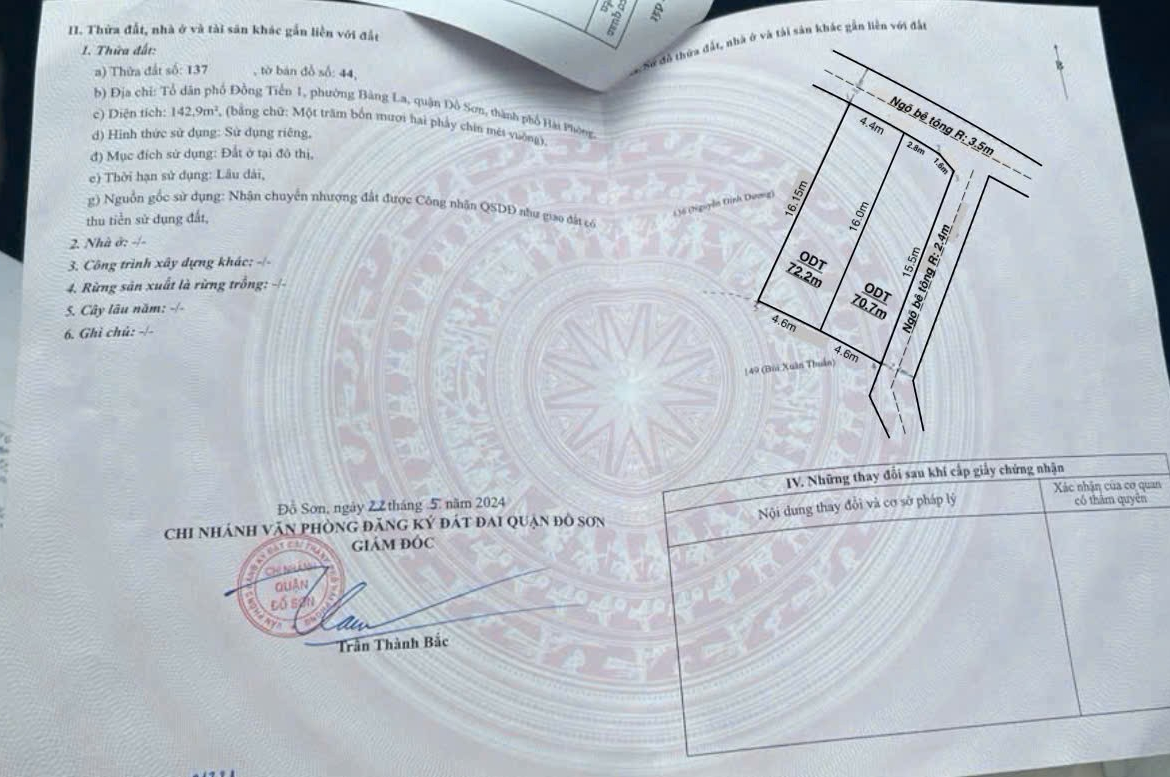 II. Thửa đất, nhà ở và tài sản khác gắn liền với đất
1. Thửa đất:
a) Thửa đất số: 137 , tờ bản đồ số: 44,
b) Địa chỉ: Tổ dân phố Đồng Tiến 1, phường Bàng La, quận Đồ Sơn, thành phố Hải Phòng,
c) Diện tích: 142,9m², (bằng chữ: Một trăm bốn mươi hai phẩy chín mét vuông),
d) Hình thức sử dụng: Sử dụng riêng,
đ) Mục đích sử dụng: Đất ở tại đô thị,
e) Thời hạn sử dụng: Lâu dài,
g) Nguồn gốc sử dụng: Nhận chuyển nhượng đất được Công nhận QSDĐ như giao đất có
thu tiền sử dụng đất,
2. Nhà ở: -/-
3. Công trình xây dựng khác: -/-
4. Rừng sản xuất là rừng trồng: -/-
5. Cây lâu năm: -/-
6. Ghi chú: -/-
Đồ Sơn, ngày 22 tháng 5 năm 2024
CHI NHÁNH VĂN PHÒNG ĐĂNG KÝ ĐẤT ĐAI QUẬN ĐỒ SƠN
GIÁM ĐỐC
CHI NHÁNH
QUẬN
ĐỒ SƠN
Trần Thành Bắc
Sơ đồ thửa đất, nhà ở và tài sản khác gắn liền với đất
B
Ngõ bê tông R: 3.5m
4.4m
2.8m
1.6m
16.15m
16.0m
15.5m
Ngõ bê tông R: 2.4m
136 (Nguyễn Đình Dương)
ODT
72.2m
ODT
70.7m
4.6m
4.6m
149 (Bùi Xuân Thuấn)
IV. Những thay đổi sau khi cấp giấy chứng nhận
Nội dung thay đổi và cơ sở pháp lý
Xác nhận của cơ quan
có thẩm quyền